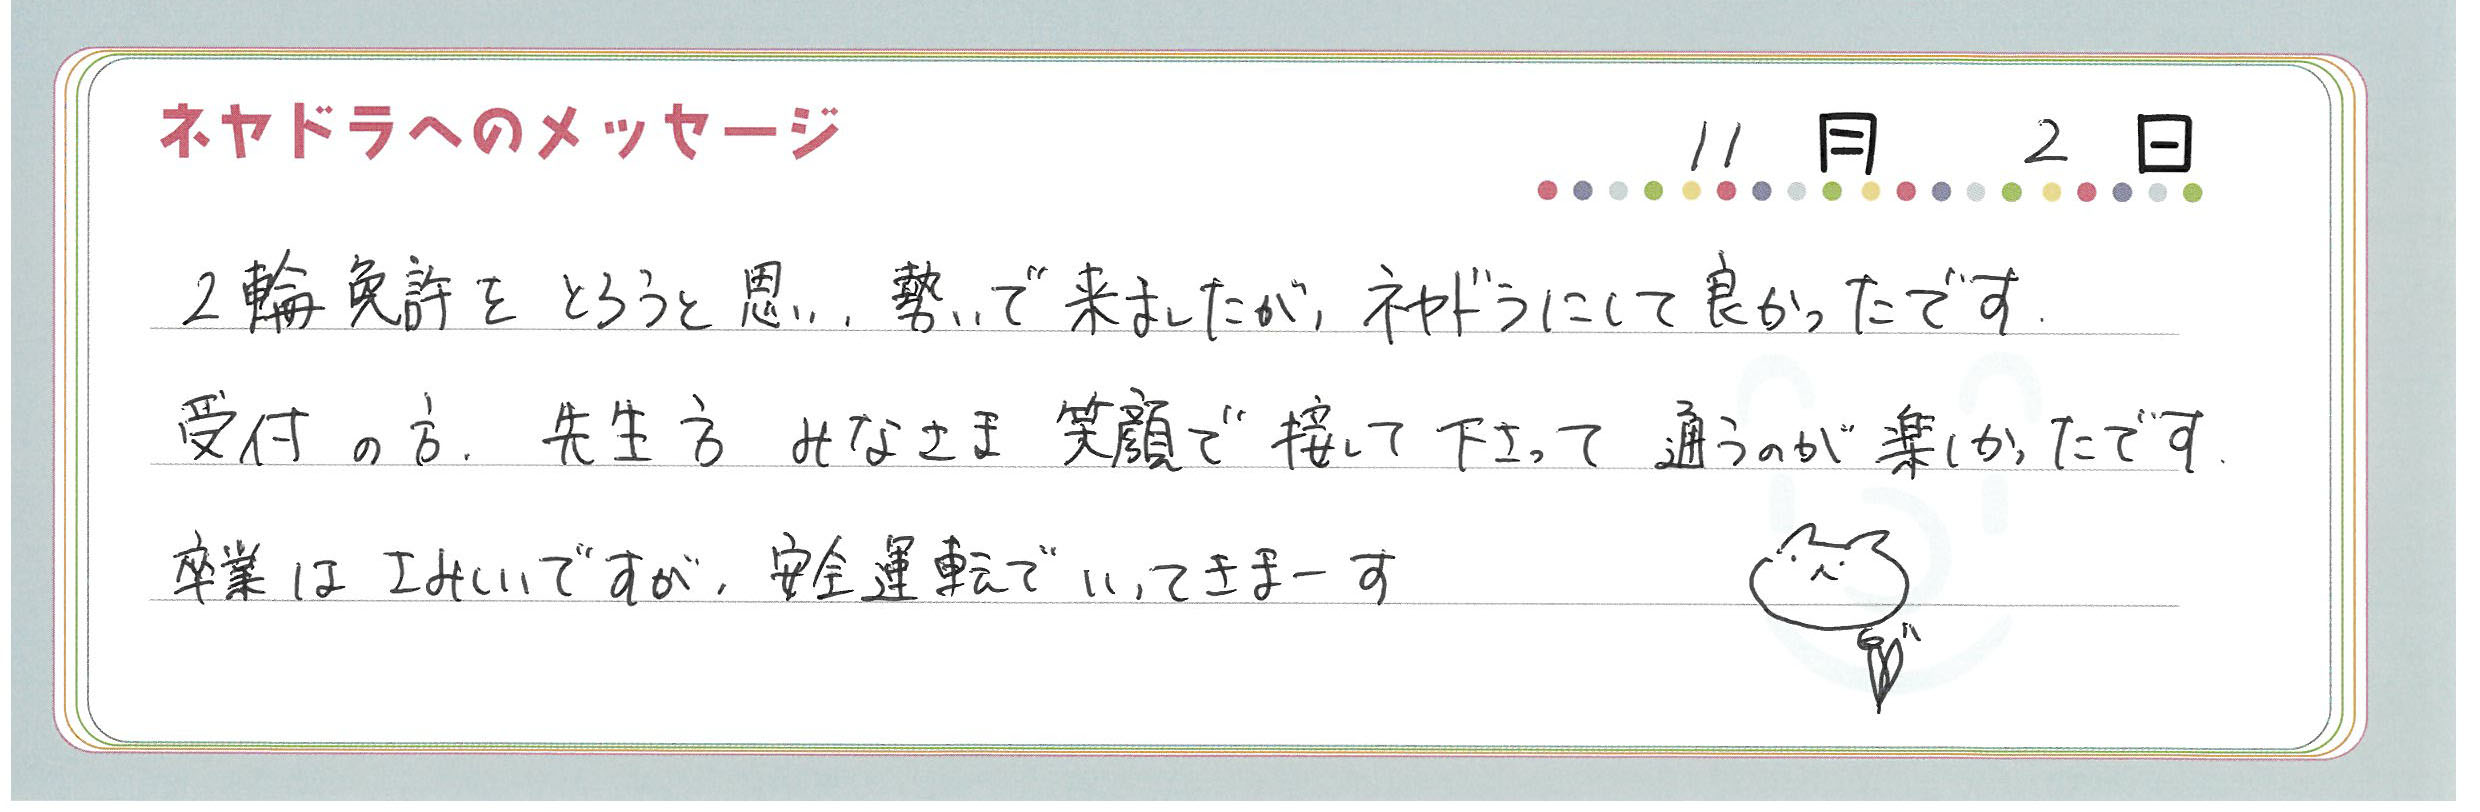 ネヤドラへのメッセージ
11月 2日
2輪免許をとろうと思い、勢いで来ましたが、ネヤドラにして良かったです.
受付の方. 先生方 みなさま 笑顔で接して下さって 通うのが楽しかったです.
卒業はさみしいですが、安全運転でいってきまーす